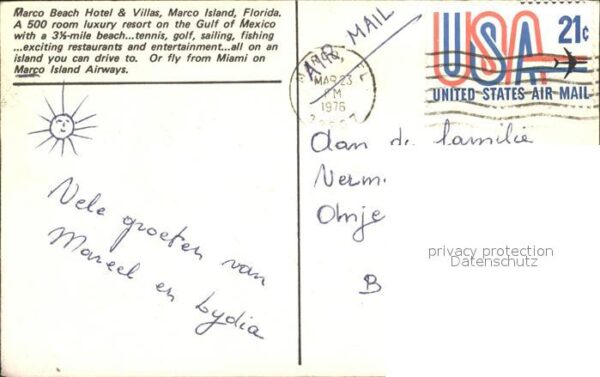 Marco Beach Hotel & Villas, Marco Island, Florida.
A 500 room luxury resort on the Gulf of Mexico
with a 3½-mile beach...tennis, golf, sailing, fishing
...exciting restaurants and entertainment...all on an
island you can drive to. Or fly from Miami on
Marco Island Airways.
AIR MAIL
MAR 23
PM
1976
USA 21c
UNITED STATES AIR MAIL
Vele groeten van
Marcel en Lydia
Aan de familie
Verm
Onje
B
privacy protection
Datenschutz